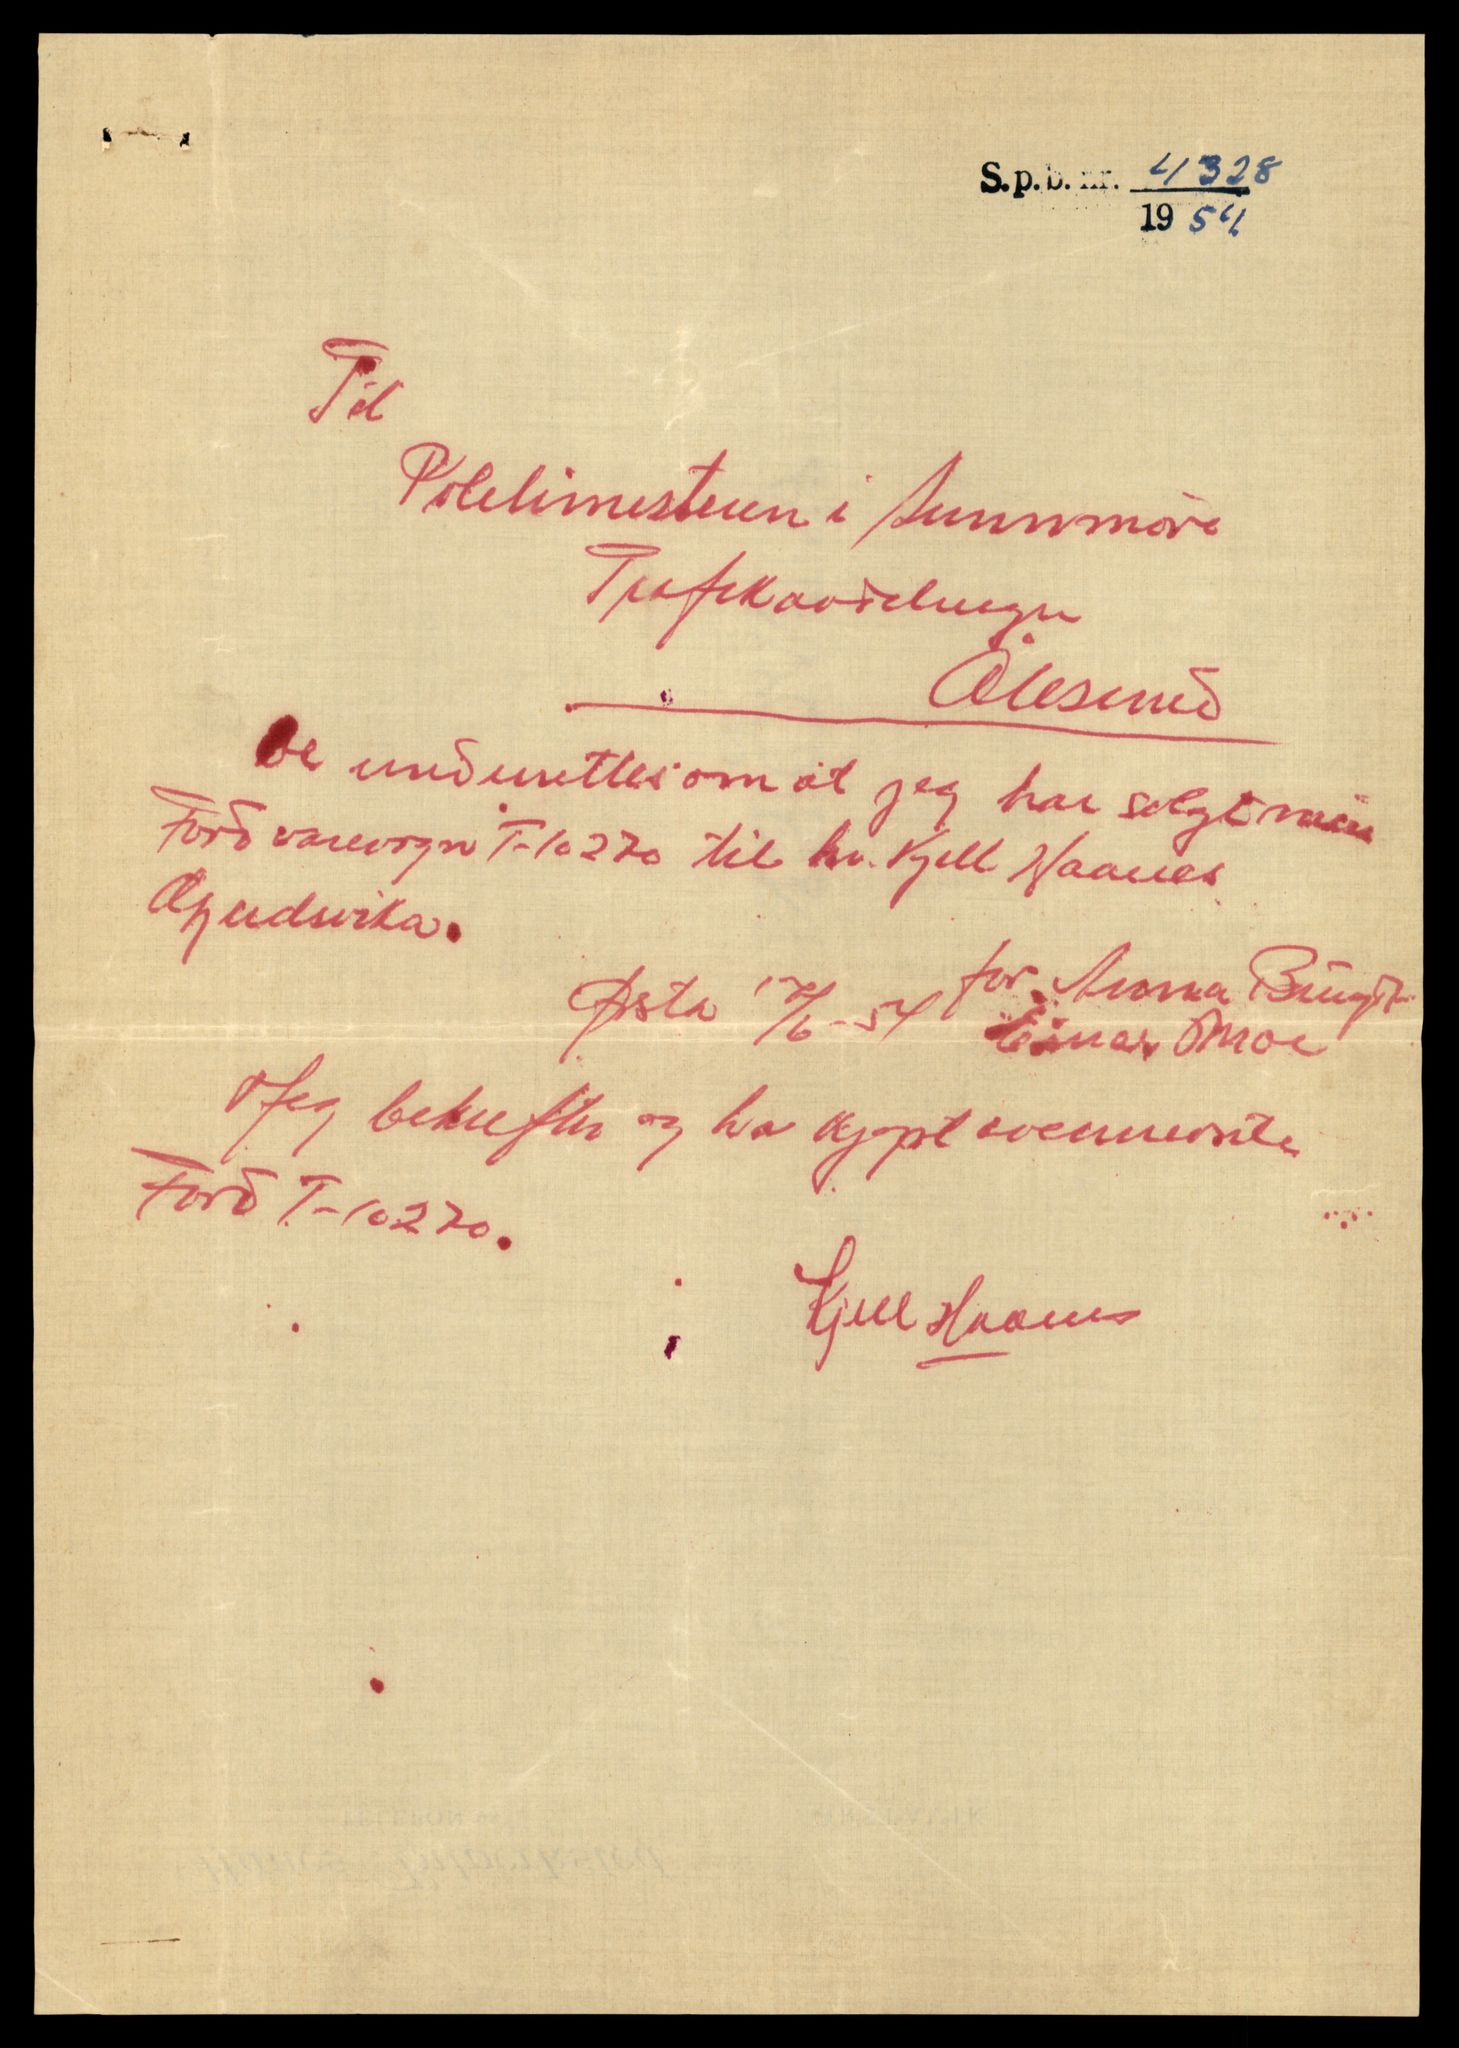 S.p.b. nr. 4328
19 54
Til
Politimesteren i Sunnmöre
Trafikavdelingen
Ålesund
De underrettes om at jeg har solgt min
Ford varevogn T-10270 til hr. Kjell Haanes
Ørsta 17/6-54 for Anna
Einar Moe
Jeg bekrefter og ha kjøpt ovennevnte
Ford T-10270.
Kjell Haanes